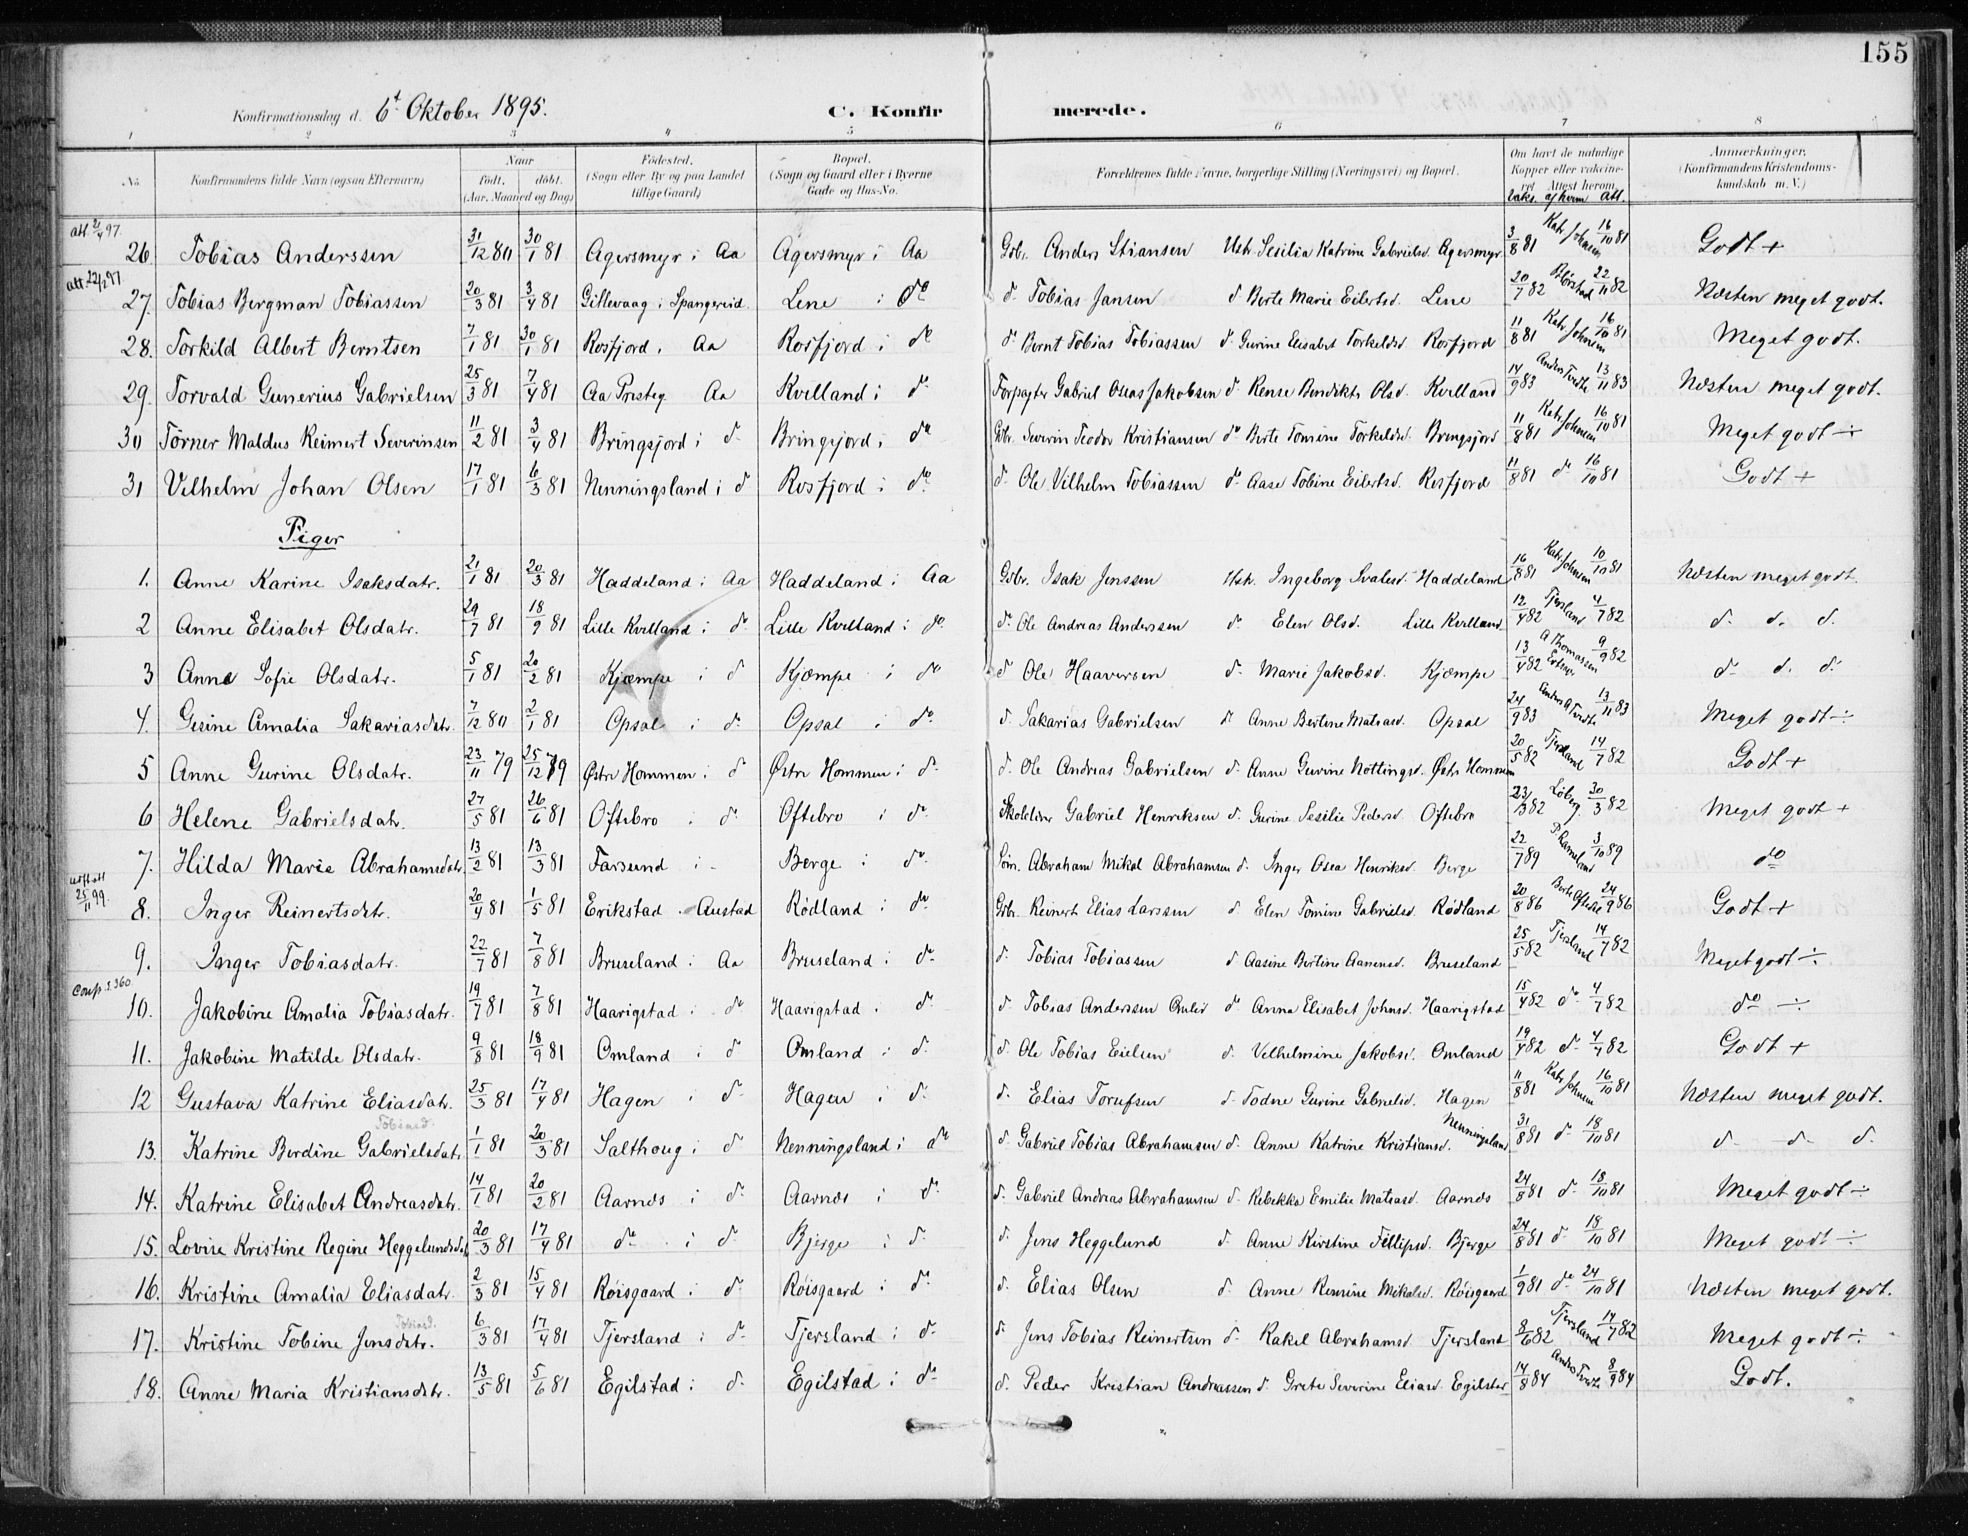 155
Konfirmationsdag d. 6t Oktober 1895. C. Konfir merede.
1 2 3 4 5 6 7 8
No. Konfirmandens fulde Navn (ogsaa Efternavn) Naar født, døbt. (Aar, Maaned og Dag) Fødested. (Sogn eller By og paa Landet tillige Gaard) Bopæl. (Sogn og Gaard eller i Byerne Gade og Hus-No. Forældrenes fulde Navne, borgerlige Stilling (Næringsvei) og Bopæl. Om havt de naturlige Kopper eller vakcineret. Attest herom. Anmærkninger. (Konfirmandens Kristendomskundskab m. V.)
Vaks. af hvem Att.
26. Tobias Anderssen 31/12 80 30/1 81 Agersmyr i Aa Agersmyr i Aa Gbr. Anders Stiansen Hstr. Sesilia Katrine Gabrielsd. Agersmyr 3/8 81 Katr Johnsen 16/10 81 Godt +
27. Tobias Bergman Tobiassen 20/3 81 3/4 81 Gitlevaag i Spangereid Lene i do d. Tobias Jansen d Berte Marie Eilertsd. Lene 20/7 82 22/11 82 Næsten meget godt.
28. Torkild Albert Berntsen 7/1 81 30/1 81 Rosfjord i Aa Rosfjord i do do Bernt Tobias Tobiassen d. Gurine Elisabet Torkeldsd Rosfjord 11/8 81 Katr Johnsen 16/10 81 Meget godt.
29. Torvald Gunerius Gabrielsen 25/3 81 7/4 81 Aa Presteg Aa Kvilland i do Forpagter Gabriel Oseas Jakobsen d. Rense Bendikte Olsd. Kvilland 14/9 83 13/11 83 Næsten meget godt.
30 Tørner Maldus Reimert Severinsen 11/2 81 3/4 81 Bringsjord i d. Bringsjord i do Gbr. Severin Teodor Kristiansen do Berte Tomine Torkeldsd. Bringsjord 11/8 81 Katr Johnsen 16/10 81 Meget godt ÷
31 Vilhelm Johan Olsen 17/1 81 6/3 81 Nenningsland i d Rosfjord i do d. Ole Vilhelm Tobiassen do Aase Tobine Eilertsd. Rosfjord 11/8 81 do 16/10 81 Godt +
Piger
1. Anne Karine Isaksdatr. 21/1 81 20/3 81 Haddeland i Aa Haddeland i Aa Gbr. Isak Jenssen Hstr. Ingeborg Svalesd. Haddeland 16/8 81 Katr Johnsen 10/10 81 Næsten meget godt.
2 Anne Elisabet Olsdatr. 29/7 81 18/9 81 Lille Kvilland i do Lille Kvilland i do do Ole Andreas Anderssen d. Elen Olsd. Lille Kvilland 12/4 82 Tjersland 4/7 82 d. d. d.
3 Anne Sofie Olsdatr. 5/1 81 20/2 81 Kjæmpe i d Kjæmpe i do d Ole Haaversen d. Marie Jakobsd. Kjæmpe 13/4 82 A Thomassen 9/9 82 d. d. d.
4. Gesine Amalia Sakariasdatr. 7/12 80 2/1 81 Opsal i d. Opsal i do d. Sakarias Gabrielsen d. Anne Bertine Matiasd. Opsal 24/9 83 13/11 83 Meget godt ÷
5 Anne Gurine Olsdatr. 23/11 79 25/12 79 Østre Hommen i d Østre Hommen i d. d. Ole Andreas Gabrielsen d. Anne Gurine Nottingsd. Østre Hommen 20/5 82 Tjersland 14/7 82 Godt +
6 Helene Gabrielsdatr. 27/5 81 26/6 81 Oftebro i d. Oftebro i do Skolelærer Gabriel Henriksen d. Gurine Sesilie Pedersd. Oftebro 23/3 82 Løberg 30/3 82 Meget godt +
7. Hilda Marie Abrahamsdatr. 13/2 81 13/3 81 Farsund i - Berge i do Søm. Abraham Mikal Abrahamsen d. Inger Osea Henriksd. Berge 22/7 89 3/10 89 do
8. Inger Reinertsdtr. 20/4 81 1/5 81 Erikstad . Austad Rødland i do Gbr. Reinert Elias Larssen d. Elen Tomine Gabrielsd. Rødland 20/8 86 24/9 86 Godt +
9. Inger Tobiasdatr. 22/7 81 7/8 81 Bruseland i Aa Bruseland i do d. Tobias Tobiassen d Aasine Bertine Aanensd. Bruseland 25/5 82 Tjersland 14/7 82 Meget godt ÷
10. Jakobine Amalia Tobiasdatr. 19/7 81 7/8 81 Haarigstad i do Haarigstad i d. d. Tobias Anderssen do Anna Elisabet Johnsd. Haarigstad 15/4 82 d. 4/7 82 do ÷
11. Jakobine Matilde Olsdatr. 9/8 81 18/9 81 Omland i d. Omland i d. d. Ole Tobias Eielsen d. Vilhelmine Jakobsd. Omland 19/4 82 d. 4/7 82 Godt +
12 Gustava Katrine Eliasdatr. 25/3 81 17/4 81 Hagen i d. Hagen i d. d. Elias Torufsen d. Todne Gurine Gabrielsd. Hagen 11/8 81 Katr Johnsen 16/10 81 Næsten meget godt.
Tobiasd.
13. Katrine Berdine Gabrielsdatr 1/1 81 20/3 81 Salthoug i d. Nenningsland i do d. Gabriel Tobias Abrahamsen d. Anne Katrine Kristiansd. Nenningsland 31/8 81 d. 18/10 81 d. d. d.
14. Katrine Elisabet Andreasdatr. 14/1 81 20/2 81 Aarnes i d. Aarnes i d. d. Gabriel Andreas Abrahamsen d. Rebekka Emilie Matiasd. Aarnes 24/8 81 d. 18/10 81 Meget godt ÷
15. Lovise Kristine Regine Heggelundsdatr 20/3 81 17/4 81 do i d Bjerge i d. d. Jens Heggelund d. Anne Kirstine Fillipsd. Bjerge 24/8 81 d. 18/10 81 Meget godt ÷
16. Kristine Amalia Eliasdatr. 2/3 81 15/4 81 Røisgaard i d. Røisgaard i do d. Elias Olsen d. Anne Romine Mikalsd. Røisgaard 1/9 81 do 24/10 81 Næsten meget godt.
Tobiasd.
17. Kristine Tobine Jensdatr. 6/3 81 17/4 81 Tjersland i d. Tjersland i d. d. Jens Tobias Reinertsen d. Rakel Abrahamsd. Tjersland 8/6 82 Tjersland 14/7 82 Meget godt ÷
18. Anne Maria Kristiansdtr. 13/5 81 5/6 81 Egilstad i d. Egilstad i do d. Peder Kristian Andreassen d. Grete Severine Eliasd. Egilstad 14/8 84 8/9 84 Godt.